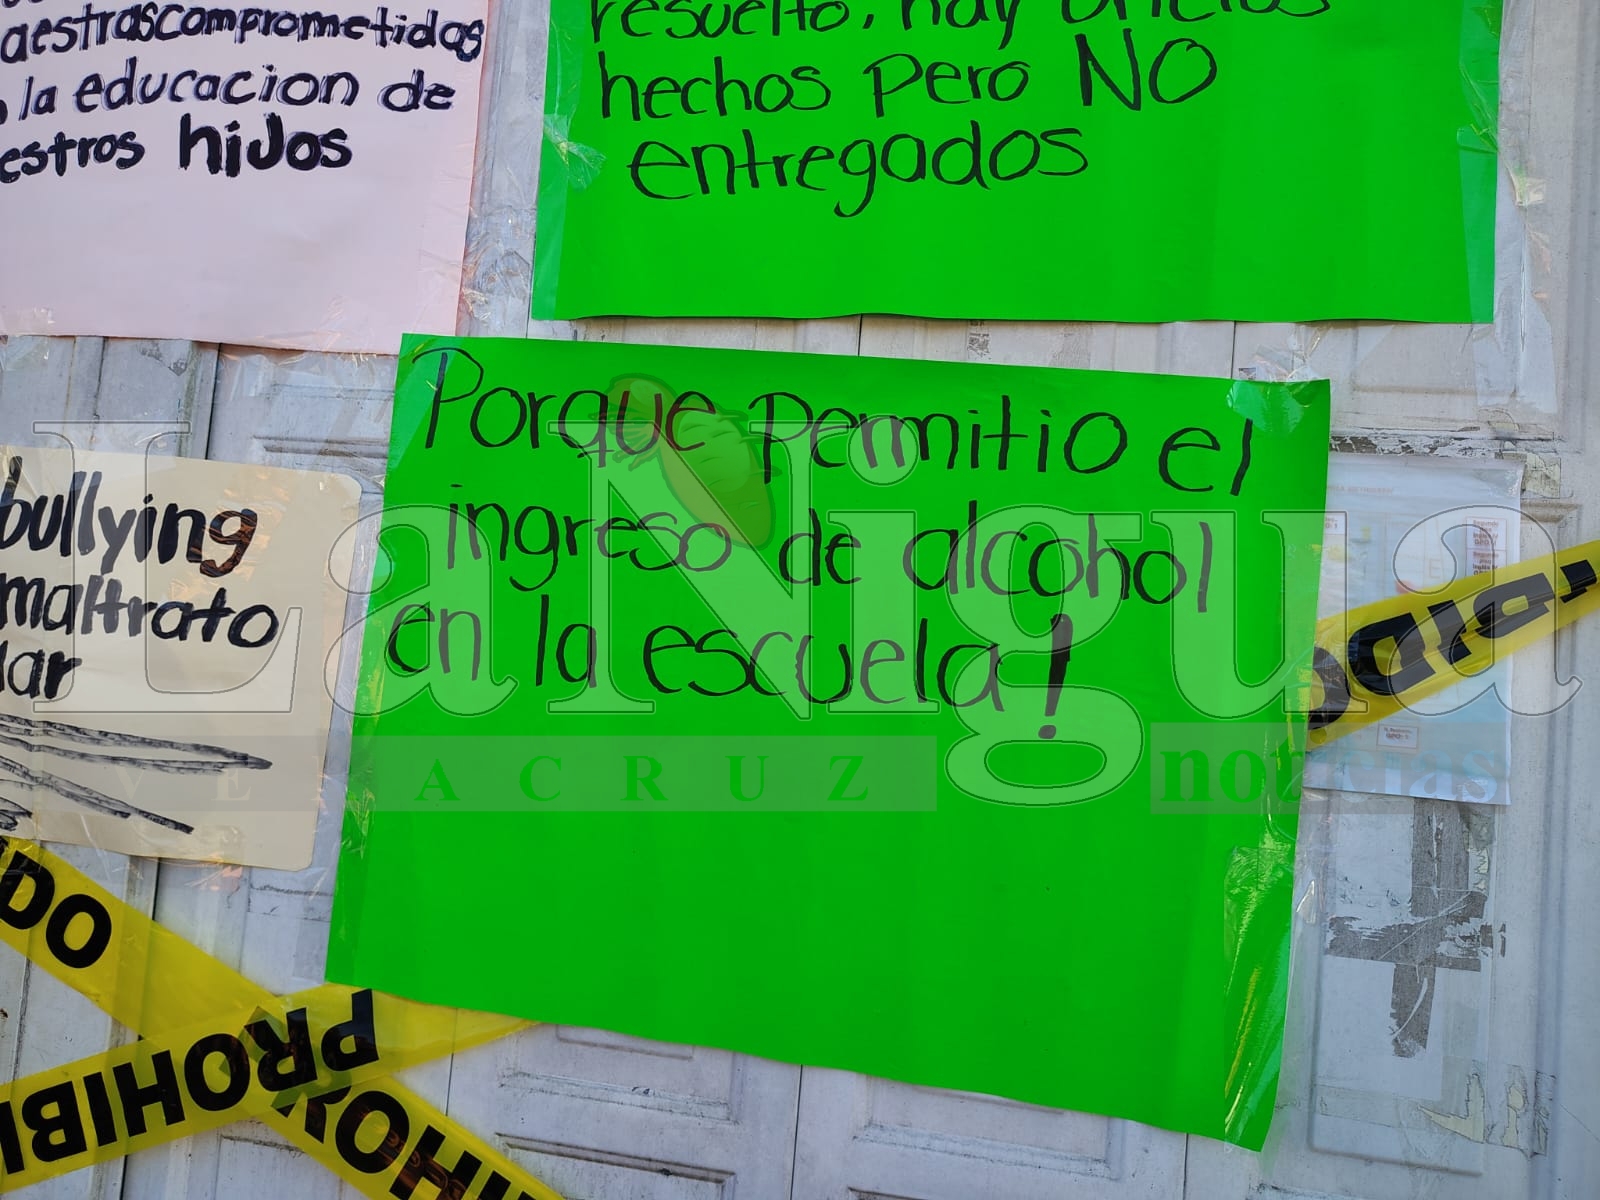 aestrascomprometidas
la educacion de
estros hijos
resuelto, hay oficios
hechos pero NO
entregados
Porque permitio el
ingreso de alcohol
en la escuela!
bullying
maltrato
lar
LaNigua
VERACRUZ noticias
IBIDO
DO
PROHIBI
ROHI